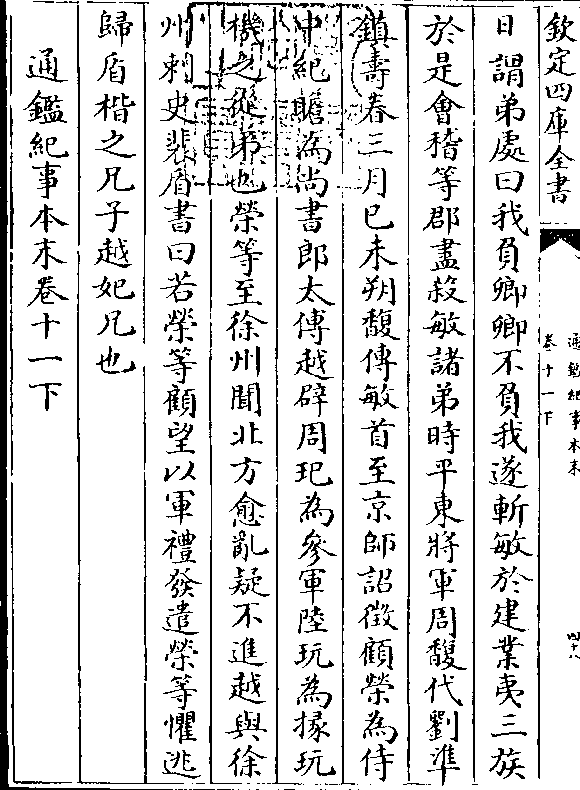 欽定四庫全書
通鑑紀事本末
卷十一下
四十八
曰謂弟處曰我負卿卿不負我遂斬敏於建業夷三族
於是會稽等郡盡殺敏諸弟時平東將軍周馥代劉準
鎮壽春三月己未朔馥傳敏首至京師詔徵顧榮為侍
中紀瞻為尚書郎太傅越辟周玘為參軍陸玩為掾玩
機之從弟也榮等至徐州聞北方愈亂疑不進越與徐
州刺史裴盾書曰若榮等顧望以軍禮發遣榮等懼逃
歸盾楷之兄子越妃兄也
通鑑紀事本末卷十一下